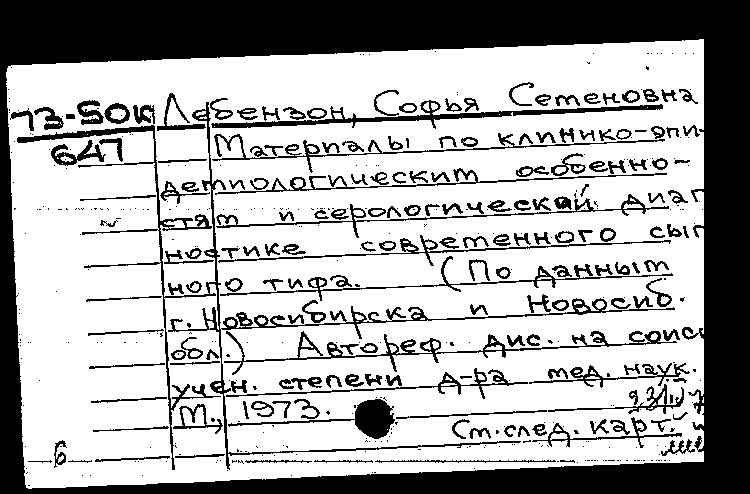 73-50к Лебензон, Софья Семеновна
647 Материалы по клинико-эпи-
демиологическим особенно-
стям и серологической диаг
ностике современного сып
ного тифа. (По данным
г. Новосибирска и Новосиб.
обл.) Автореф. дис. на соиск
учен. степени д-ра мед. наук.
М., 1973.
См. след. карт.
6